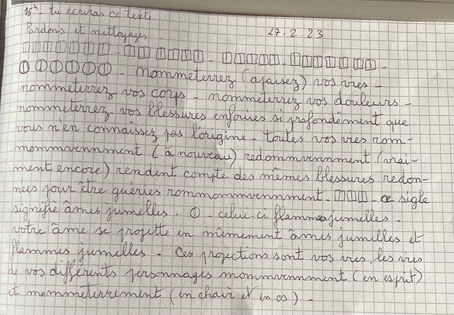 tu écriras ce texte
Pardons et nettoyages 27.2 23
nommeterrez (apaisez) vos vies -
nommeterrez vos corps - nommeterrez vos douleurs -
nommeterrez vos blessures enfouies si profondément que
vous n'en connaissez pas l'origine. toutes vos vies rom-
(à nouveau) redommvennment (vrai-
ment encore) rendent compte des mêmes blessures redon-
nées pour être guéries - ce sigle
signifie âmes jumelles. ① - celui-ci flammes jumelles -
votre âme se projette en mêmement âmes jumelles et
flammes jumelles - Ces projections sont vos vies, les vies
de vos différents personnages mommvennment (en esprit)
et mommeterrement (en chair et en os) -